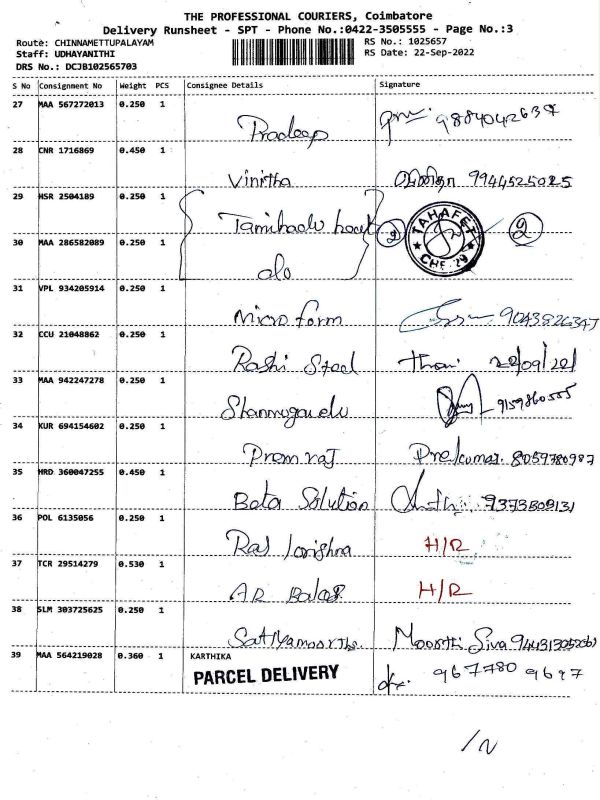 THE PROFESSIONAL COURIERS, Coimbatore
Delivery Runsheet - SPT - Phone No.:0422-3505555 - Page No.:3
Route: CHINNAMETTUPALAYAM RS No.: 1025657
Staff: UDHAYANITHI RS Date: 22-Sep-2022
DRS No.: DCJB102565703
S No Consignment No Weight PCS Consignee Details Signature
27 MAA 567272013 0.250 1
Pradeep 9884042637
28 CNR 1716869 0.450 1
Vinitha வினிதா 9944525025
29 HSR 2504189 0.250 1
Tamilnadu 2 TAHAFET 2
30 MAA 286582089 0.250 1
CHE 29
do
31 VPL 934205914 0.250 1
Micro form 9043826347
32 CCU 21048862 0.250 1
Rashi Steel 22/09/22
33 MAA 942247278 0.250 1
9159860555
34 KUR 694154602 0.250 1
Prem raj 8059780987
35 HRD 360047255 0.450 1
Bata Solution 9373509131
36 POL 6135056 0.250 1
Raj krishna H/R
37 TCR 29514279 0.530 1
AR Balaji H/R
38 SLM 303725625 0.250 1
Sathyamoorthi Moorthi Siva
39 MAA 564219028 0.360 1 KARTHIKA
PARCEL DELIVERY 967780 9697